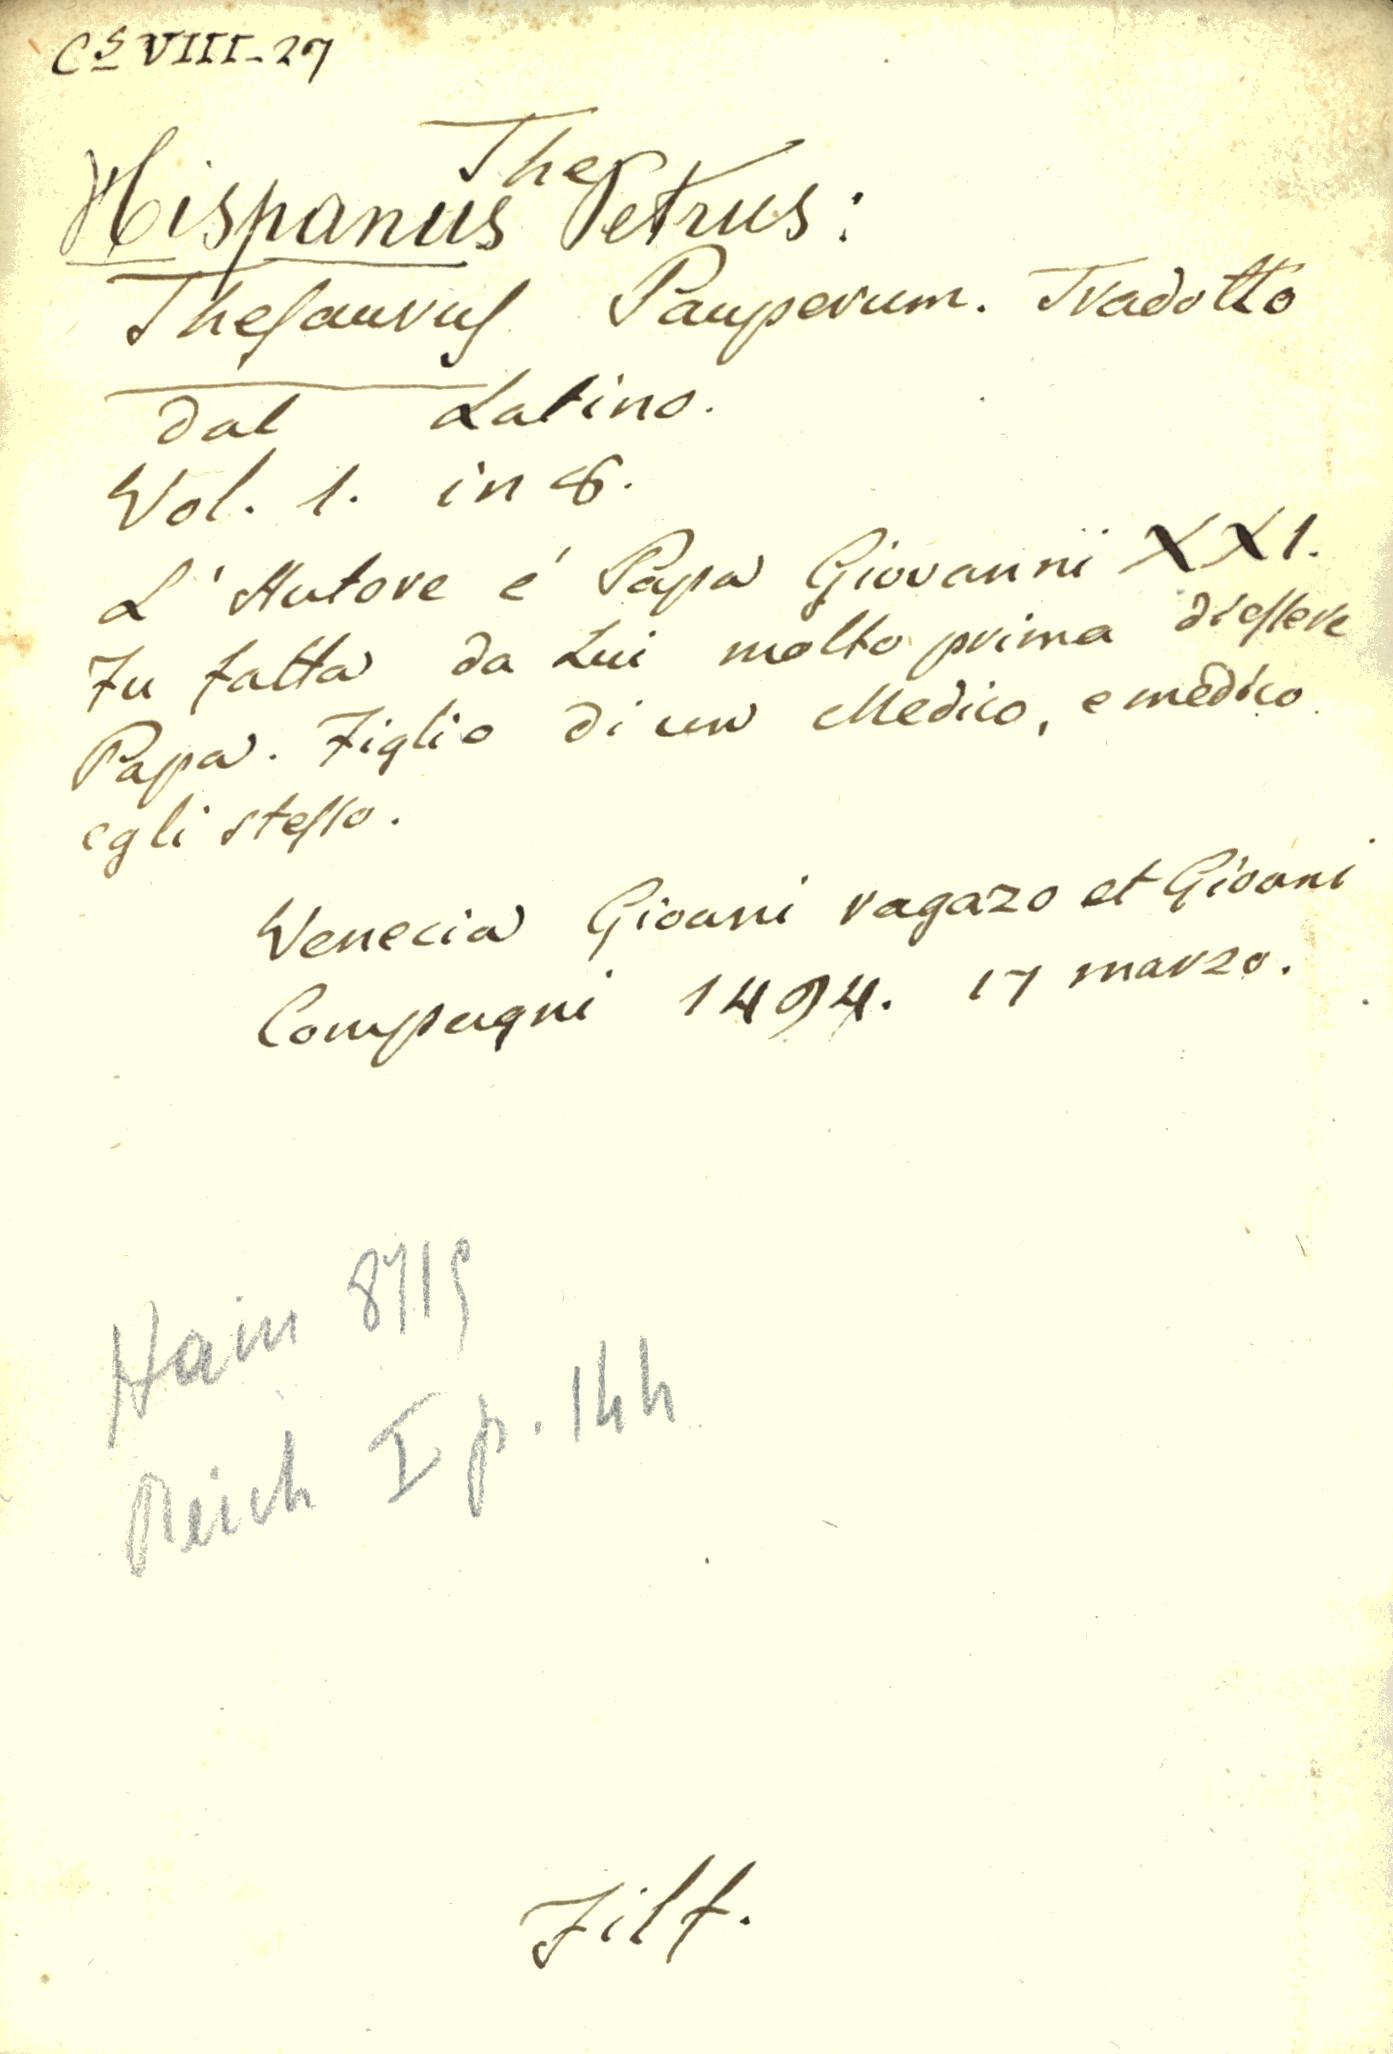 Cˢ VIII-27
The
Hispanus Petrus:
Theſauruſ Pauperum. Tradotto
dal Latino.
Vol. 1. in 8.
L'Autore é Papa Giovanni XXI.
Fu fatta da Lui molto prima dieſſere
Papa. Figlio di un Medico, e medico
egli steſſo.
Venecia Gioani ragazo et Gioani
Compagni 1494. 17 marzo.
Hain 8719
Reich I p. 144
Filf.